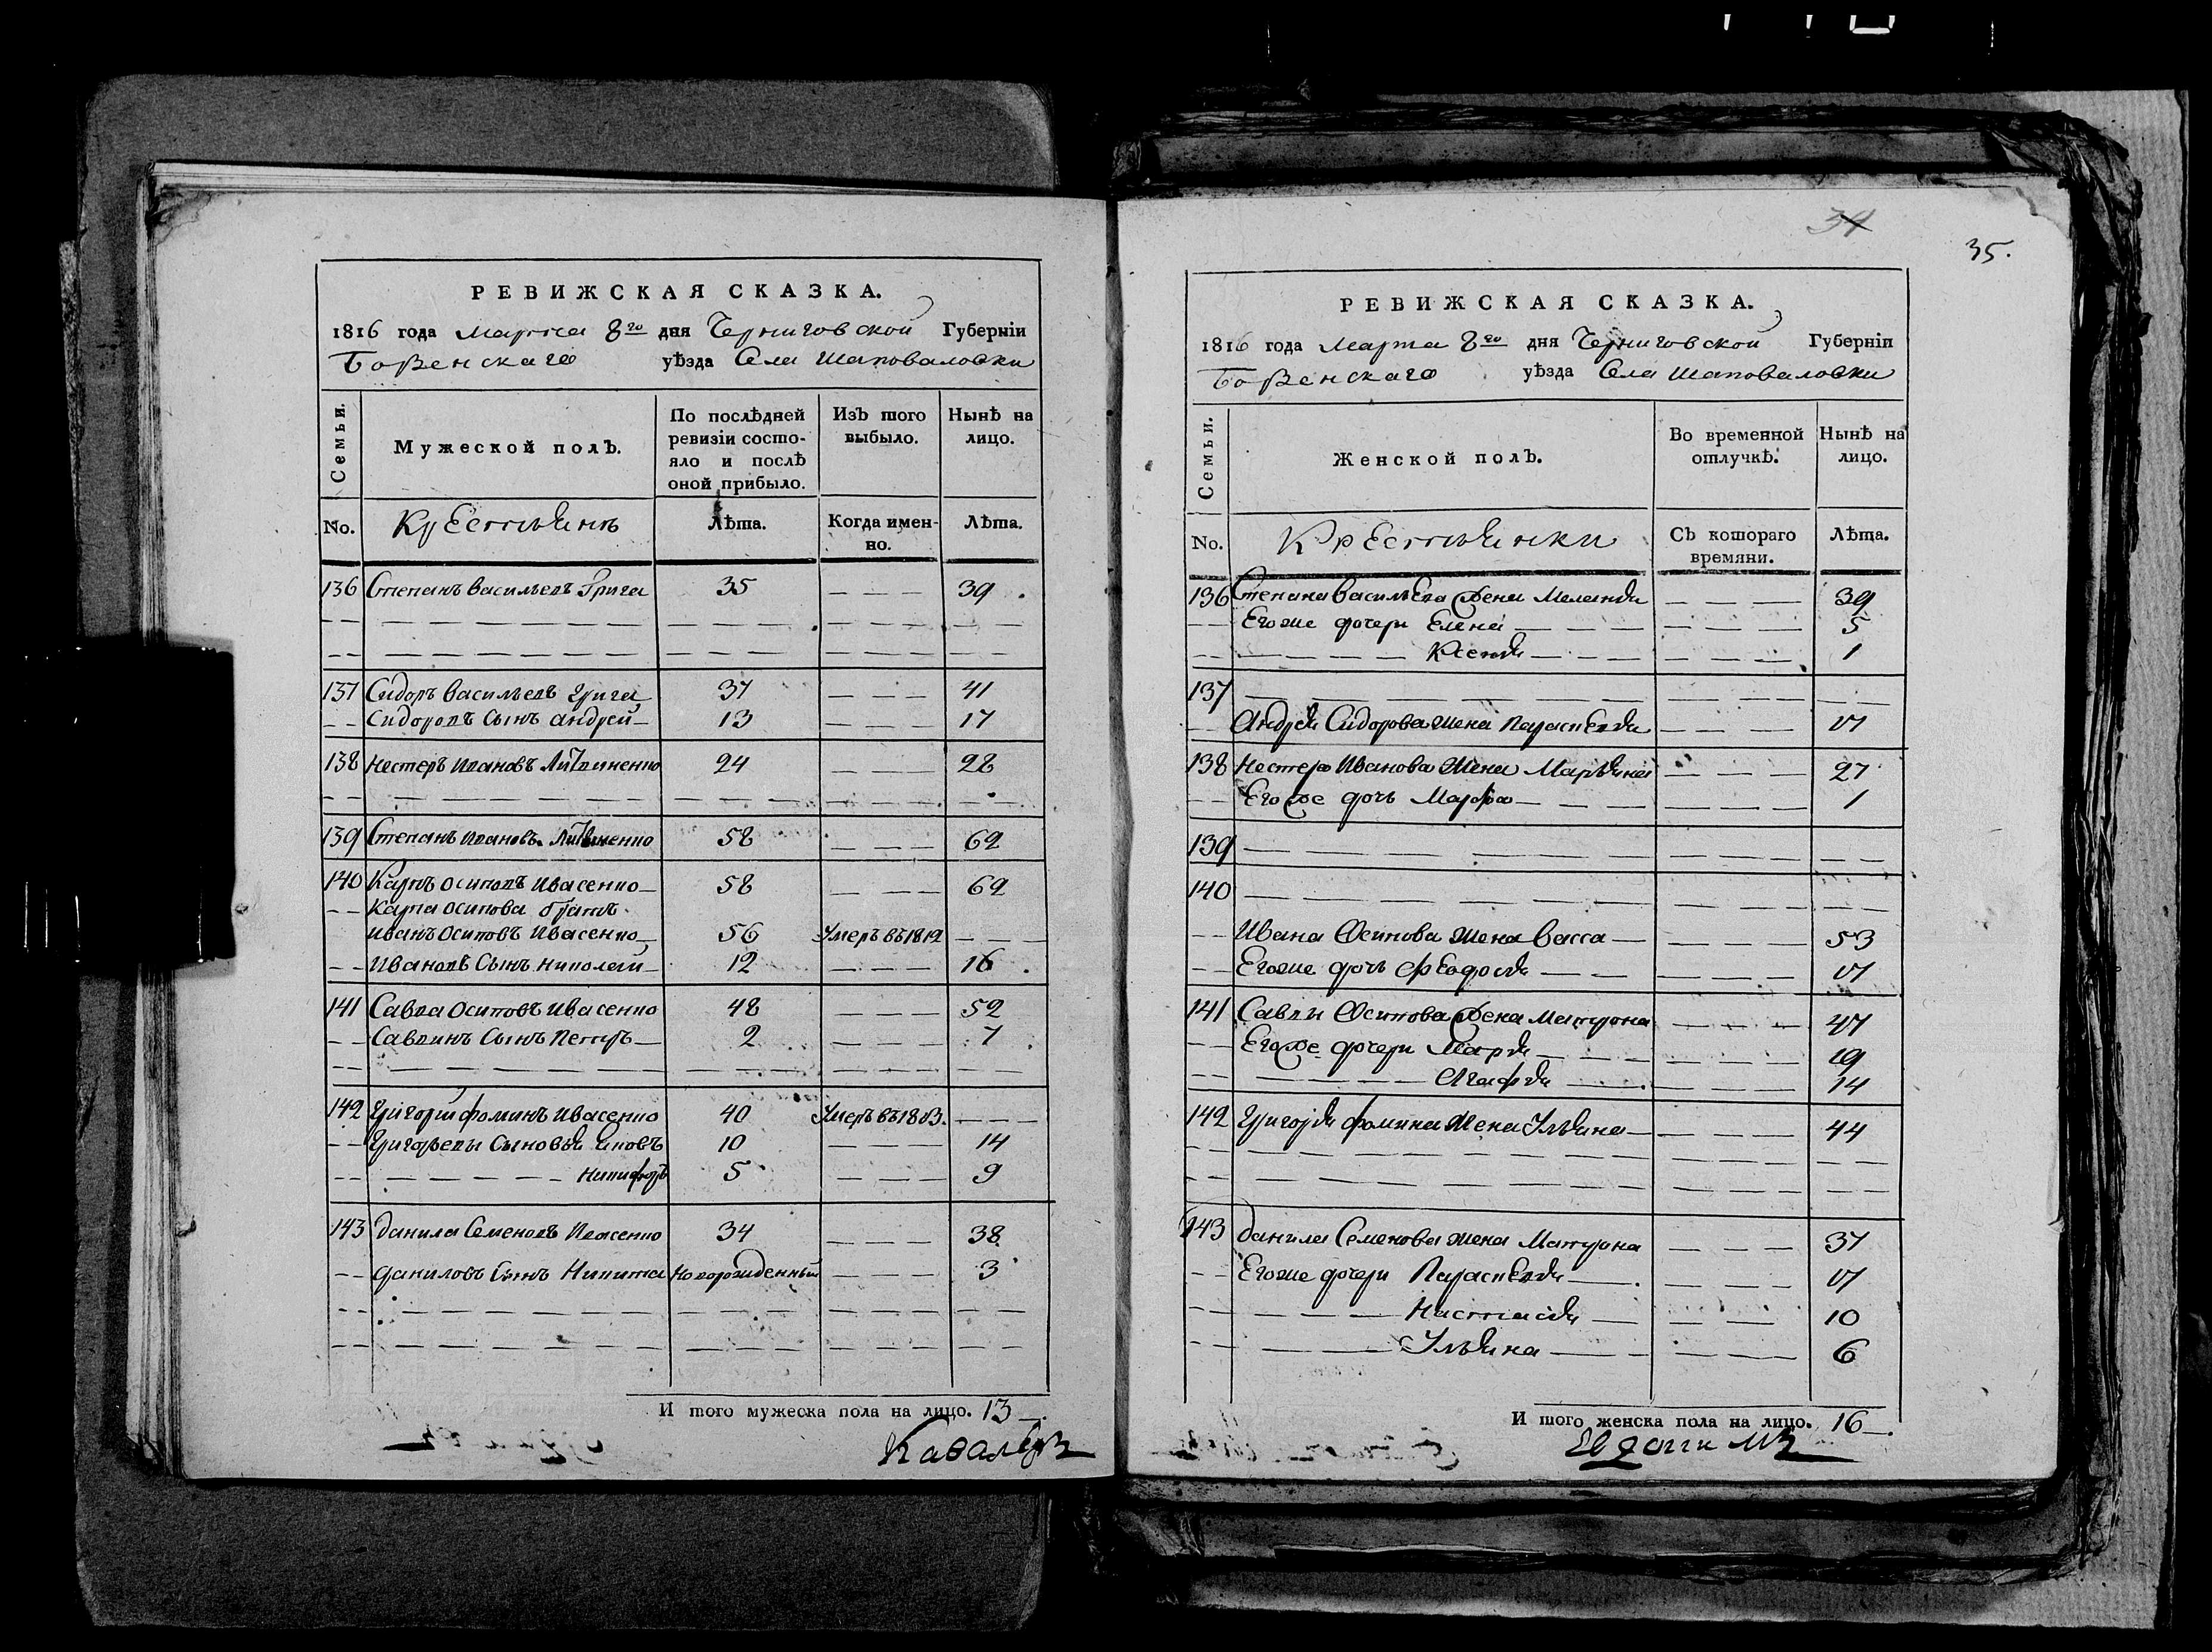 РЕВИЖСКАЯ СКАЗКА.
1816 года Марта 8го дня Черниговской Губерніи
Борзенскаго уѣзда Села Шаповаловки
Семьи.
Мужеской полЪ.
По послѣдней ревизіи состояло и послѣ оной прибыло.
ИзЪ того выбыло.
Нынѣ на лицо.
No. Крестьянъ Лѣта. Когда именно. Лѣта.
136 Степанъ Васильевъ Грига 35 — — — 39
137 Сидоръ Васильевъ Грига 37 — — — 41
Сидоровъ Сынъ Андрей 13 — — — 17
138 Нестеръ Ивановъ Литвиненко 24 — — — 28
139 Степанъ Ивановъ Литвиненко 58 — — — 62
140 Карпъ Осиповъ Ивасенко 58 — — — 62
Карпа Осипова братъ
Иванъ Осиповъ Ивасенко 56 Умеръ въ 1812 — — —
Ивановъ Сынъ Николай 12 — — — 16
141 Савва Осиповъ Ивасенко 48 — — — 52
Саввинъ Сынъ Петръ 2 — — — 7
142 Григорій Фоминъ Ивасенко 40 Умеръ въ 1813. — — —
Григорьевы Сыновья Яковъ 10 — — — 14
Никифоръ 5 — — — 9
143 Данила Семеновъ Ивасенко 34 — — — 38
Даниловъ Сынъ Никита Новорожденный — — — 3
И того мужеска пола на лицо. 13
34
35.
РЕВИЖСКАЯ СКАЗКА.
1816 года Марта 8го дня Черниговской Губерніи
Борзенскаго уѣзда Села Шаповаловки
Семьи.
Женской полЪ.
Во временной отлучкѣ.
Нынѣ на лицо.
No. Крестьянки СЪ котораго времяни. Лѣта.
136 Степана Васильева Жена Меланья — — — 39
Его же дочери Елена — — — 5
Ксенья — — — 1
137 — — —
Андрея Сидорова жена Параскевья — — — 17
138 Нестера Иванова Жена Марьяна — — — 27
Его же дочь Марфа — — — 1
139 — — —
140 — — —
Ивана Осипова жена Васса — — — 53
Его же дочь Феодосья — — — 17
141 Саввы Осипова Жена Матрона — — — 47
Его же дочери Марья — — — 19
Агафья — — — 14
142 Григорья Фомина Жена Ульяна — — — 44
143 Данила Семенова жена Матрона — — — 37
Его же дочери Параскевья — — — 17
Настасья — — — 10
Ульяна — — — 6
И того женска пола на лицо. 16